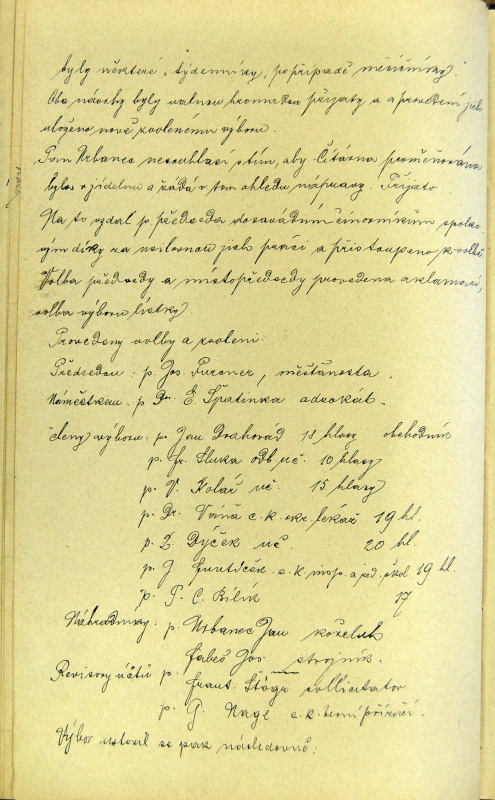 byly některé „týdenníky, po případě mesičníky.“
Oba návrhy byly valnou hromadou přijaty a a provedení jich
vloženo nově zvolenému výboru.
Pan Urbanec nesouhlasí s tím, aby Čítárna proměňována
byla v jídelnu a žádá v tom ohledu nápravy. Přijato
Na to vzdal p. předseda dosavádním činovníkům spolko-
vým díky za usilovnou jich práci a přistoupeno k volbě
Volba předsedy a místopředsedy provedena aklamací,
volba výboru lístky.
Provedeny volby a zvoleni:
Předsedou: p. Jos. Purcner, měšťanosta.
Náměstkem: p Dr. E. Špatinka advokát.
členy výboru: p Jan Drahorád 18 hlasy obchodník
p. fr. Sluka odb. uč. 10 hlasy
p. V. Kolář uč. 15 hlasy
p. Dr. Váňa c. k. okr. lékař 19 hl.
p. Z. Dýček uč. 20 hl.
p. J. c. k. insp. a řed. škol 19 hl.
p. T. C. Bílík 17
Náhradníky: p. Urbanec Jan koželuh
Jos strojník.
Revisory účtů p. frant. Štögr sollicitator
p. G. Nagl c. k. berní
Výbor ustavil se pak následovně: